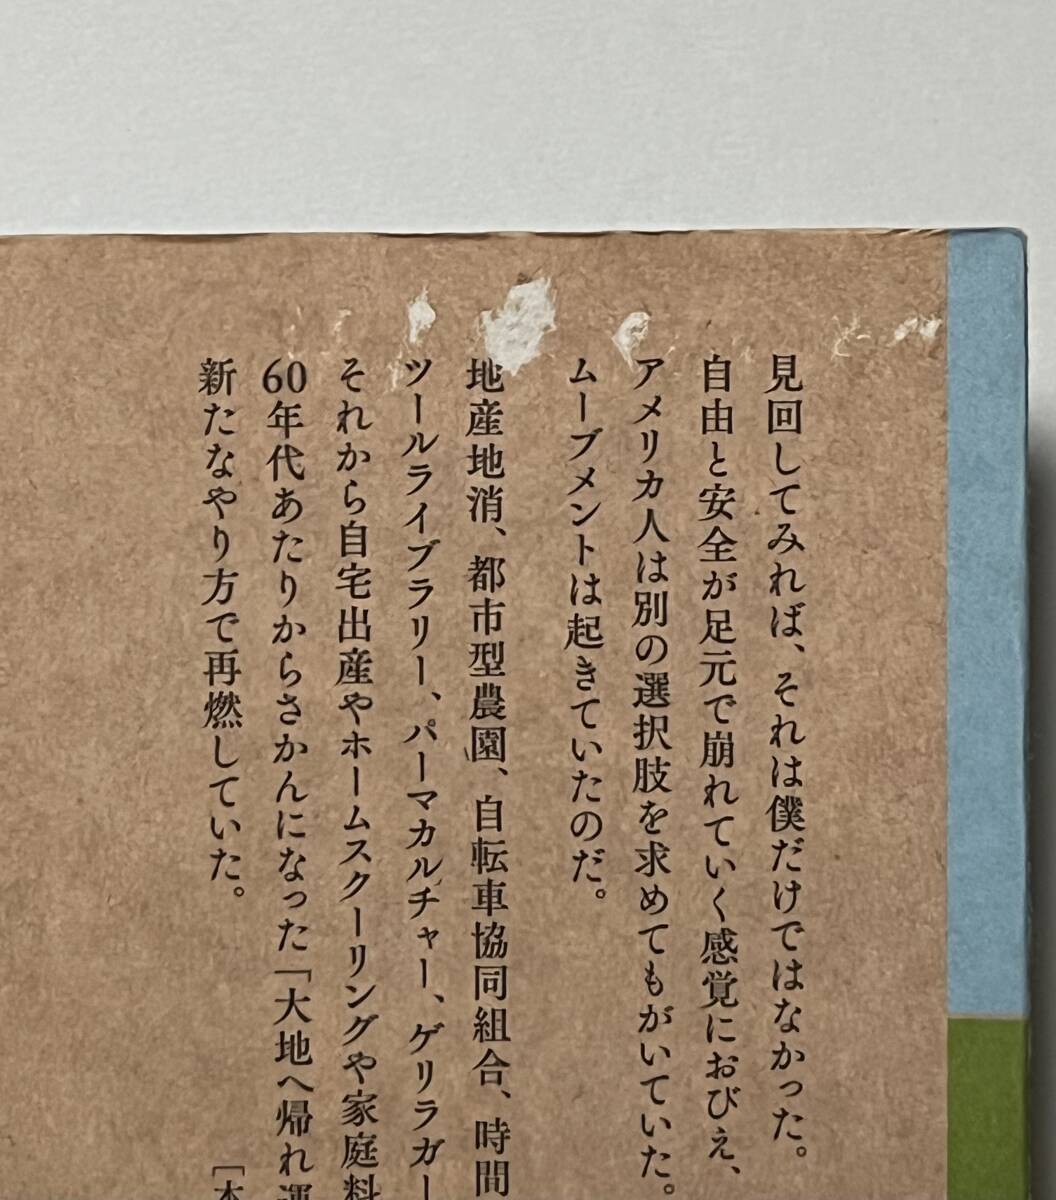 見回してみれば、それは僕だけではなかった。
自由と安全が足元で崩れていく感覚におびえ、
アメリカ人は別の選択肢を求めてもがいていた。
ムーブメントは起きていたのだ。
地産地消、都市型農園、自転車協同組合、時間
ツールライブラリー、パーマカルチャー、ゲリラガー
それから自宅出産やホームスクーリングや家庭料
60年代あたりからさかんになった「大地へ帰れ運
新たなやり方で再燃していた。
［本